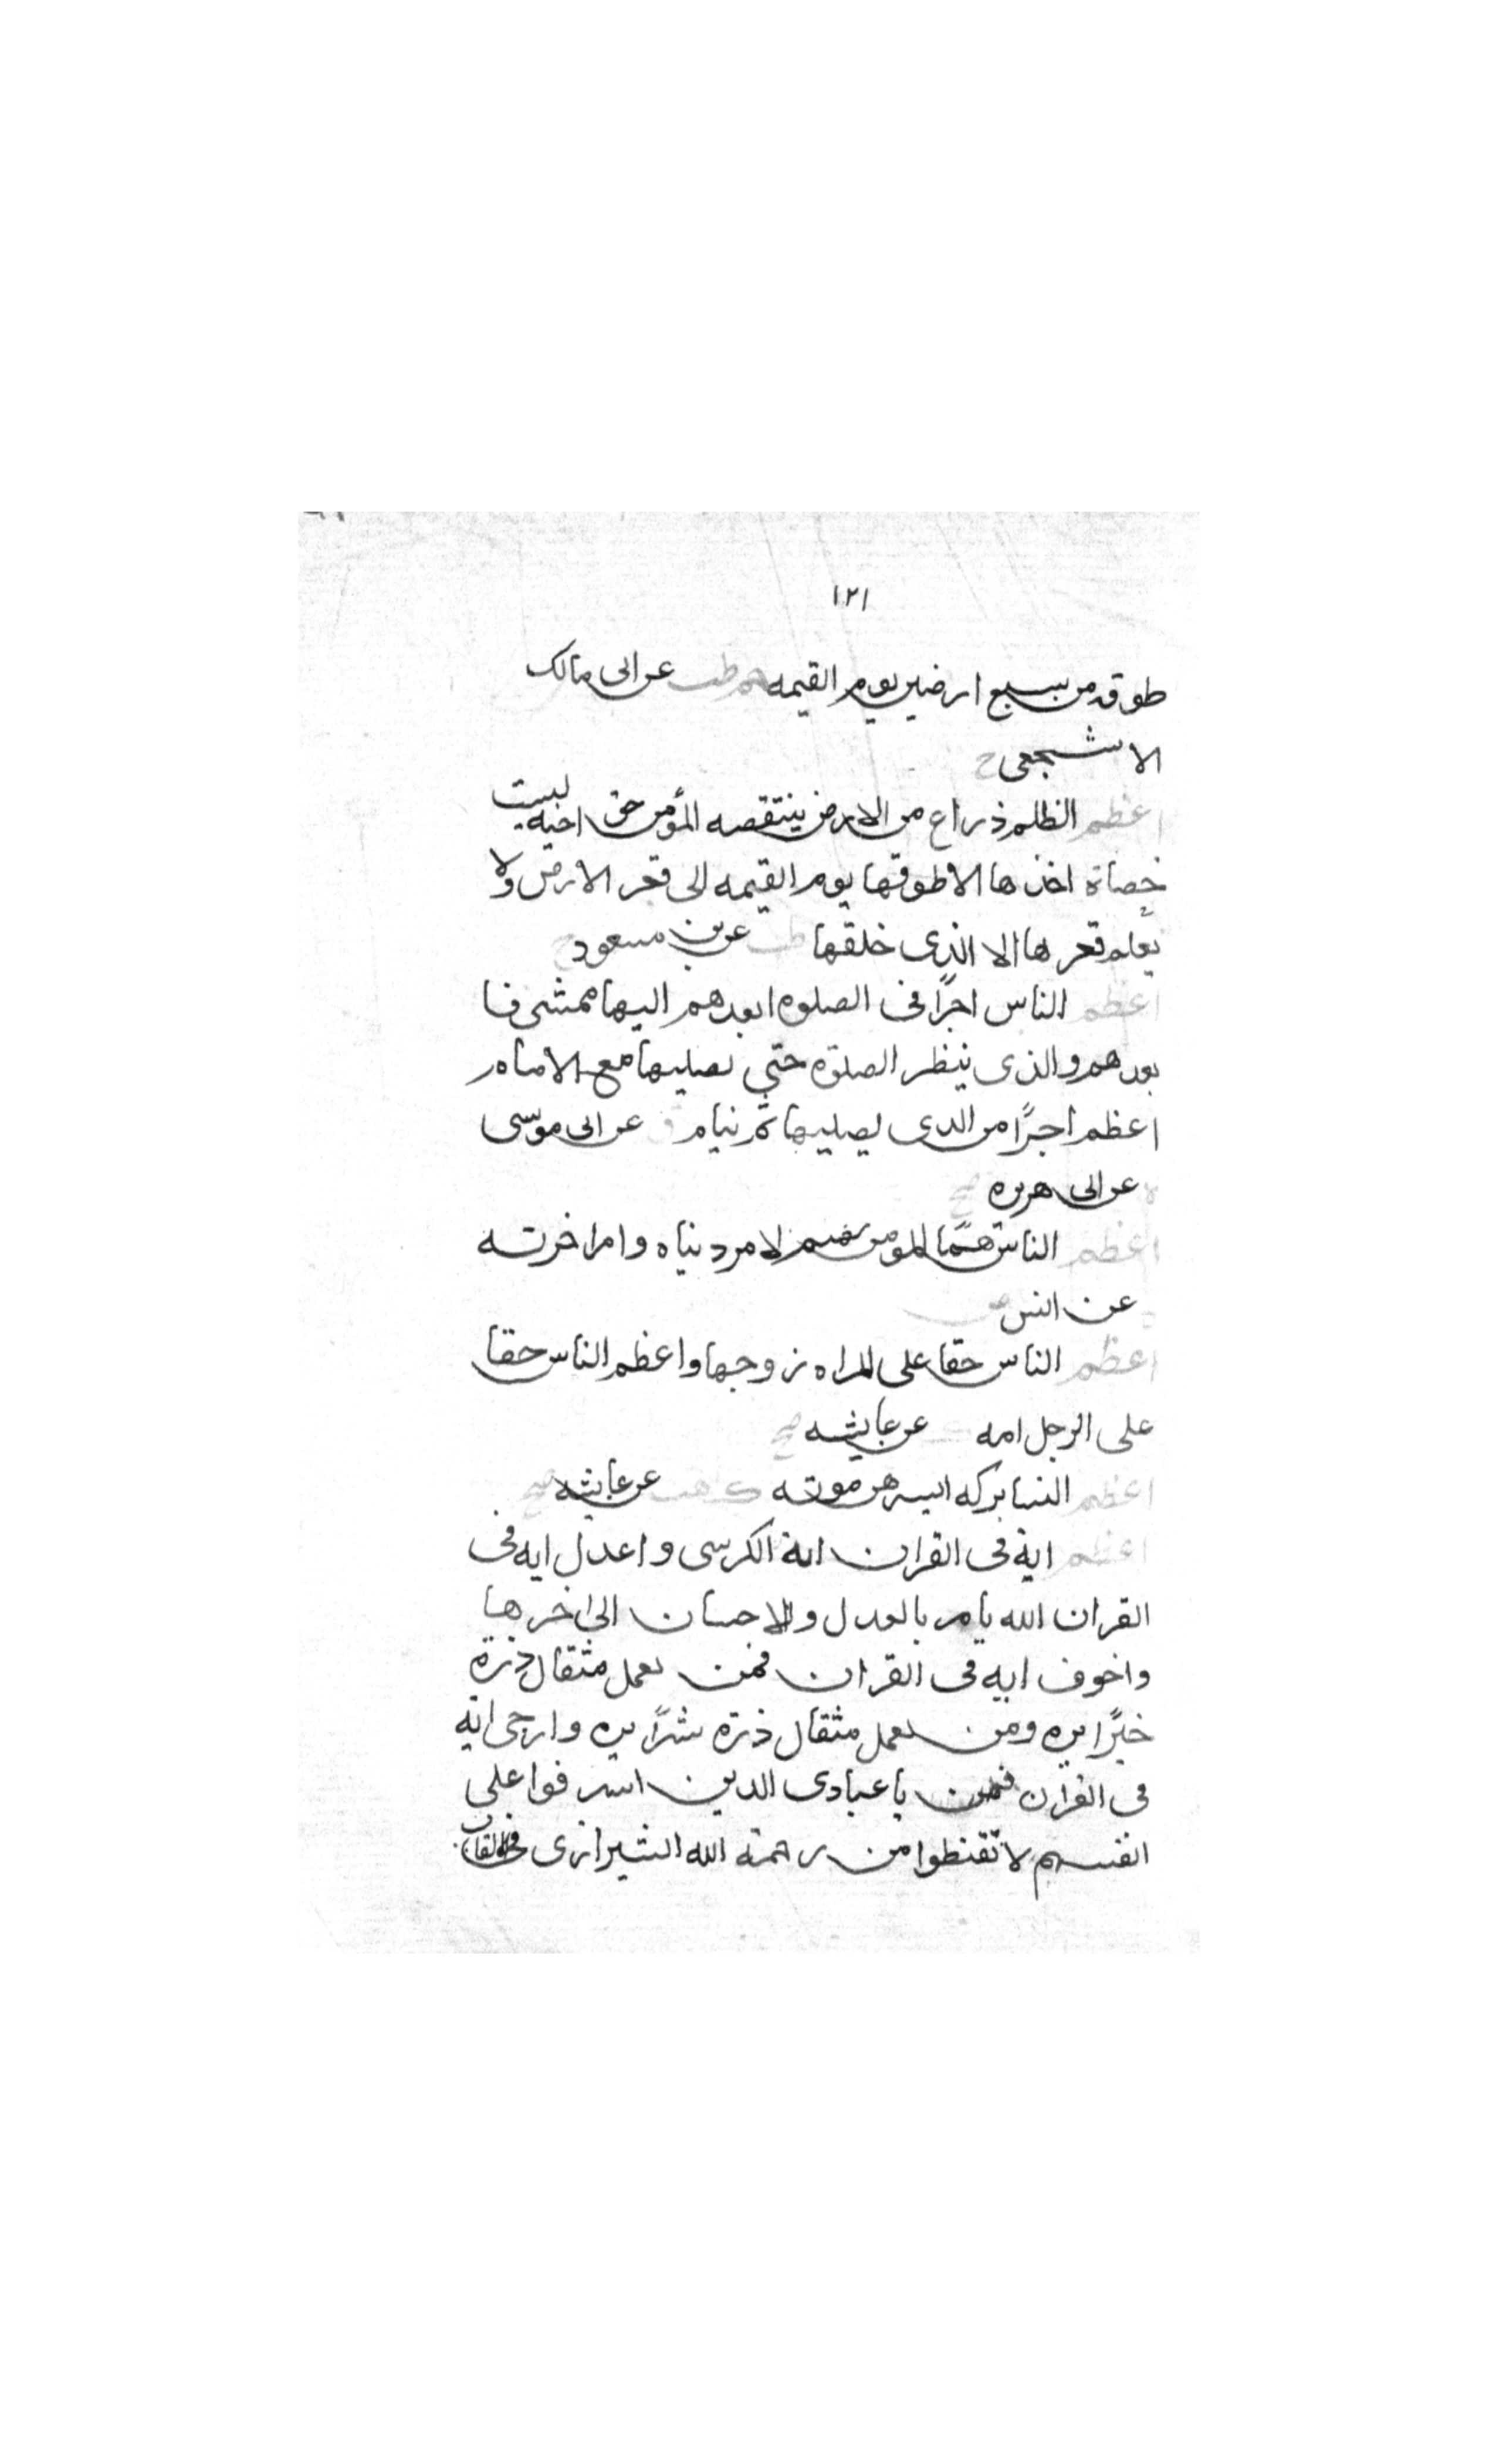 ١٢١
طوقه من سبع ارضين يوم القيمه حم طب عن ابى مالك
الاشجعى ح
اعظم الظلم ذراع من الارض ينتقصه المؤمن حق اخيه ليست
حصاة اخذها الا طوقها يوم القيمه الى قعر الارض ولا
يعلم قعرها الا الذى خلقها طب عن بن مسعود ح
اعظم الناس اجرًا فى الصلوه ابعدهم اليها ممشى فا
بعدهم والذى ينتظر الصلوة حتى يصليها مع الامام
اعظم اجرًا من الذى يصليها ثم ينام ق عن ابى موسى
ه عن ابى هريره صح
اعظم الناس همًا المومن يهتم لامر دنياه وامر اخرته
ه عن انس
اعظم الناس حقا على المراه زوجها واعظم الناس حقا
على الرجل امه ك عن عايشه صح
اعظم النسا بركه ايسرهن مونه ك هب عن عايشه صح
اعظم اية فى القران اية الكرسى واعدل ايه فى
القران الله يامر بالعدل والاحسان الى اخرها
واخوف ايه فى القران فمن يعمل مثقال ذرة
خيرًا يره ومن يعمل مثقال ذرة شرًا يره وارجى اية
فى القران يا عبادى الذين اسرفوا على
انفسهم لا تقنطوا من رحمة الله الشيرازى فى الالقاب